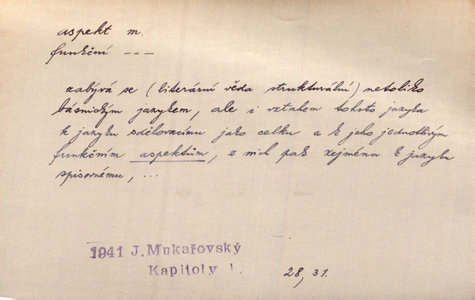 aspekt m.
funkční ---
zabývá se (literární věda strukturální) netoliko
básnickým jazykem, ale i vztahem tohoto jazyka
k jazyku sdělovacímu jako celku a k jeho jednotlivým
funkčním aspektům, z nich pak zejména k jazyku
spisovnému, ...
1941 J. Mukařovský
Kapitoly I.
28, 31.